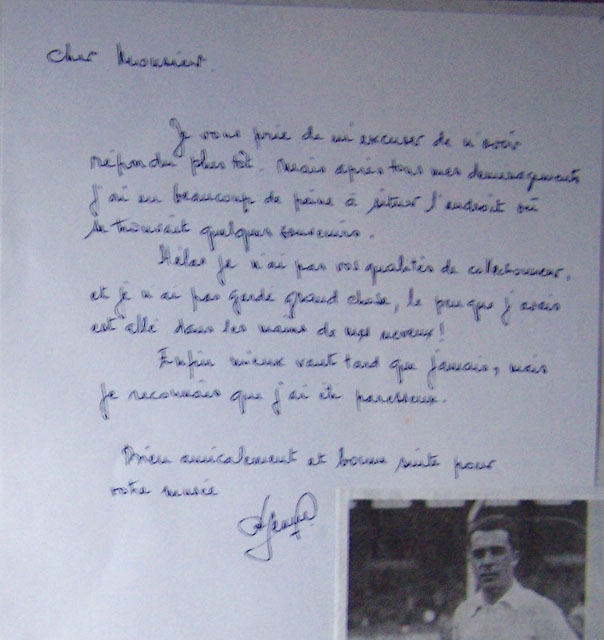 Cher Monsieur.
Je vous prie de m'excuser de n'avoir
répondu plus tôt. Mais après tous mes demenagements
j'ai eu beaucoup de peine à situer l'endroit où
se trouvait quelques souvenirs.
Hélas je n'ai pas vos qualités de collectionneur,
et je n'ai pas gardé grand chose, le peu que j'avais
est allé dans les mains de mes neveux!
Enfin mieux vaut tard que jamais, mais
je reconnais que j'ai été paresseux.
Bien amicalement et bonne suite pour
votre musée